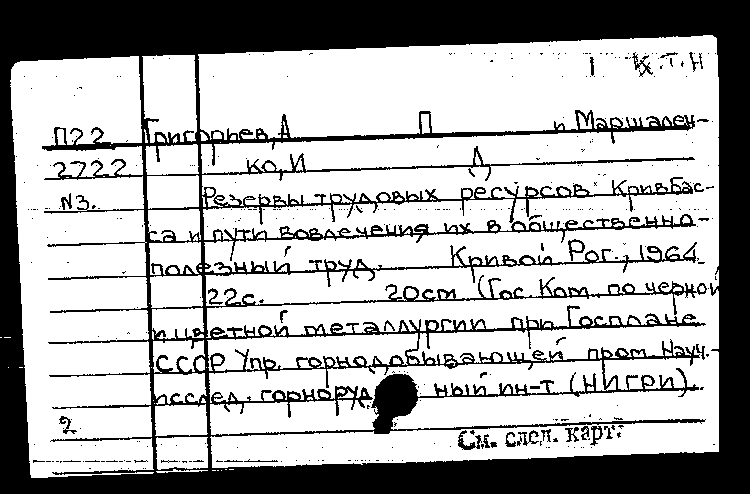 1 К.Т.Н
П22 Григорьев, А П и Маршален-
2722 ко, И Д
№3. Резервы трудовых ресурсов Кривбас-
са и пути вовлечения их в общественно-
полезный труд. Кривой Рог., 1964
22с. 20cm (Гос. Ком. по черной
и цветной металлургии при Госплане
СССР Упр. горнодобывающей пром. Науч.-
исслед. горноруд ный ин-т (НИГРИ).
2
См. след. карт.